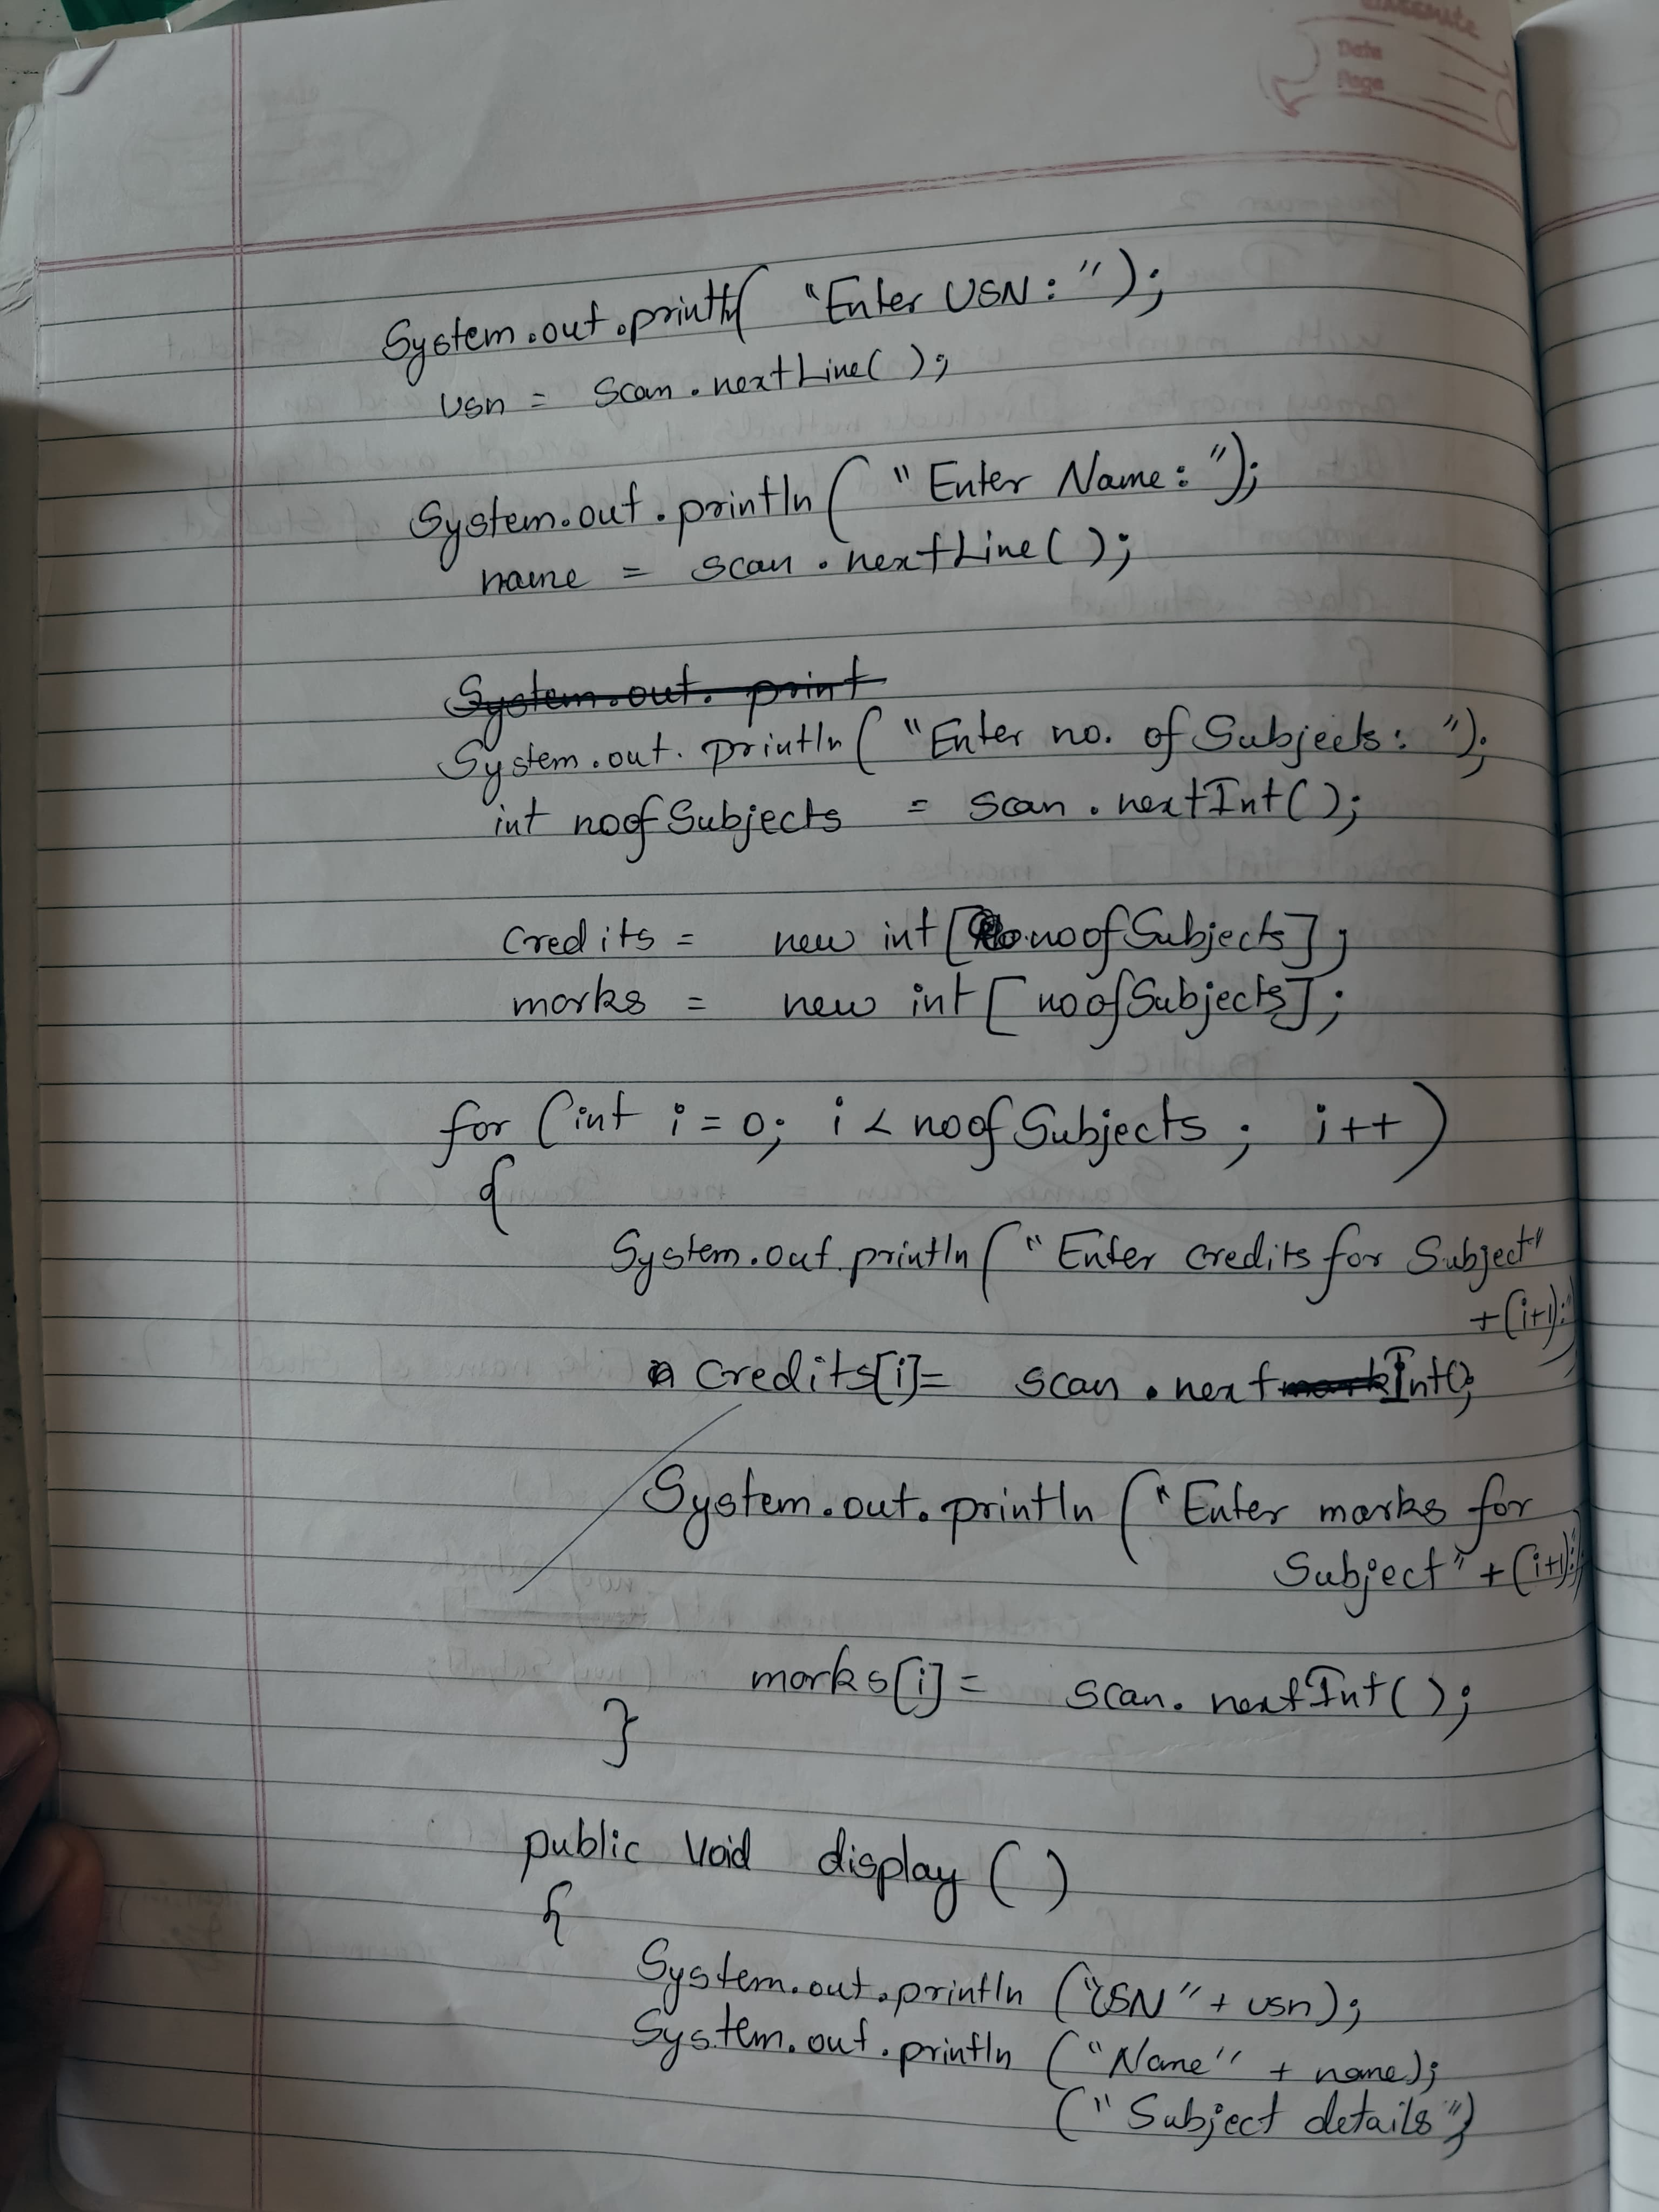 classmate
Date
Page
System.out.println( "Enter USN: ");
usn = scan.nextLine( );
System.out.println( "Enter Name: ");
name = scan.nextLine( );
System.out. print
System.out. println( "Enter no. of Subjects: ");
int noofSubjects = scan.nextInt( );
credits = new int [noofSubjects];
marks = new int [ noofSubjects];
for (int i = 0; i < noofSubjects ; i++ )
{
System.out.println( "Enter credits for Subject"
+(i+1):"
credits[i]= scan.nextInt();
System.out.println ( "Enter marks for
Subject" +(i+1):
marks[i] = scan.nextInt( );
}
public void display ( )
{
System.out.println ("USN" + usn);
System.out.println ( "Name" + name);
( "Subject details")